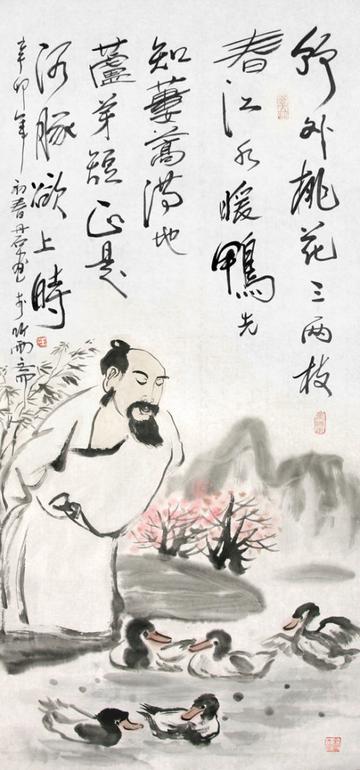 竹外桃花三两枝
春江水暖鴨先
知蔞蒿満地
蘆芽短正是
河豚欲上時
辛卯年初春丹石画于听雨斋